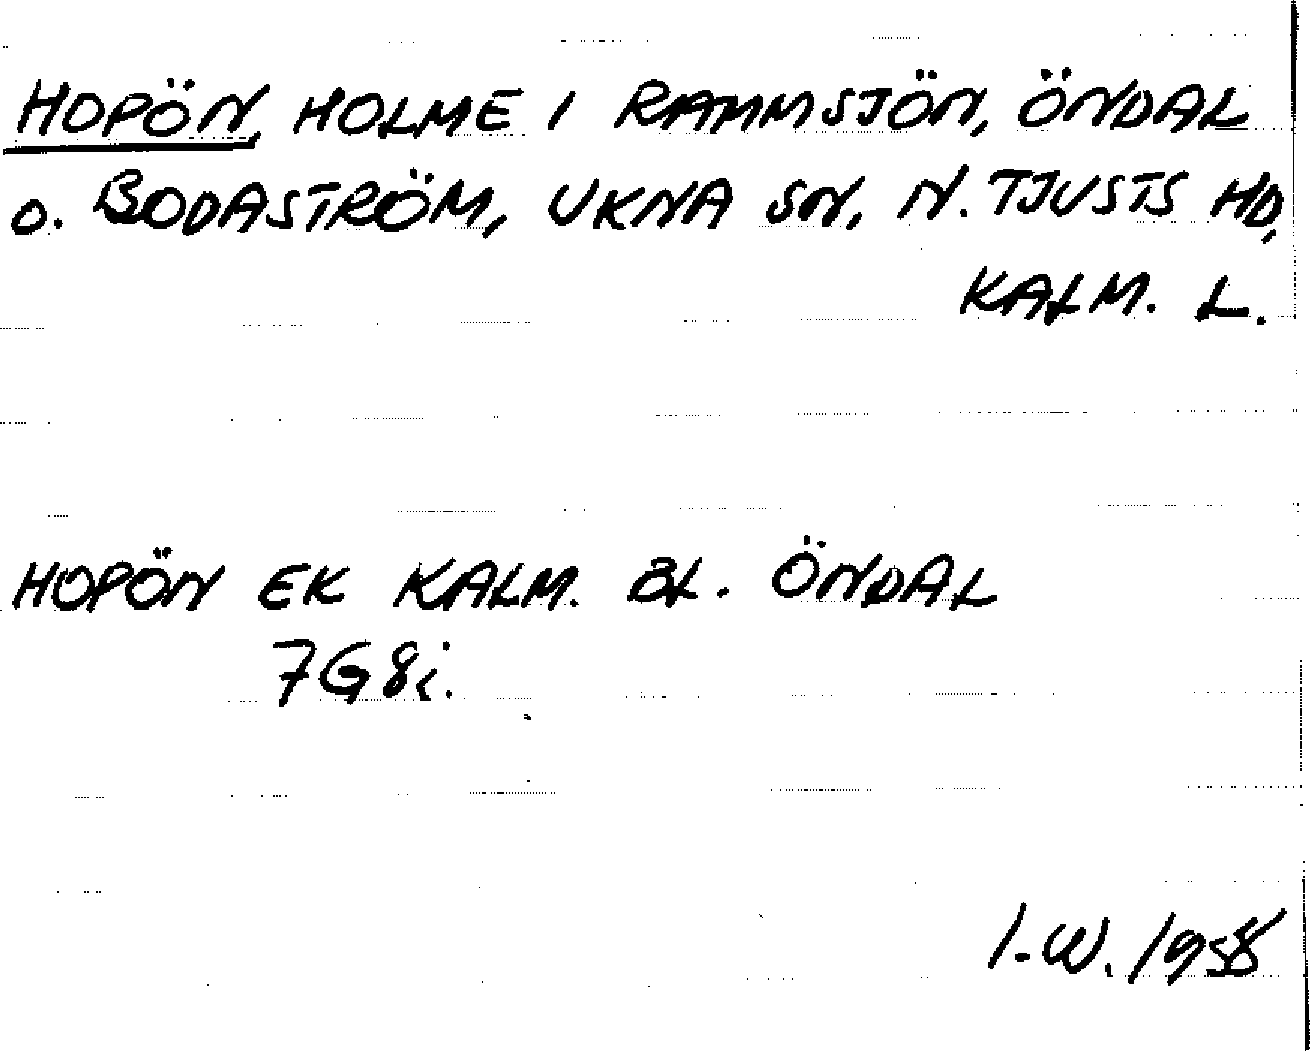 HOPÖN, HOLME I RAMMSJÖN, ÖNDAL
o. BODASTRÖM, UKNA SN, N. TJUSTS HD,
KALM. L.
HOPÖN EK KALM. BL. ÖNDAL
7G8i.
I-W. 1958